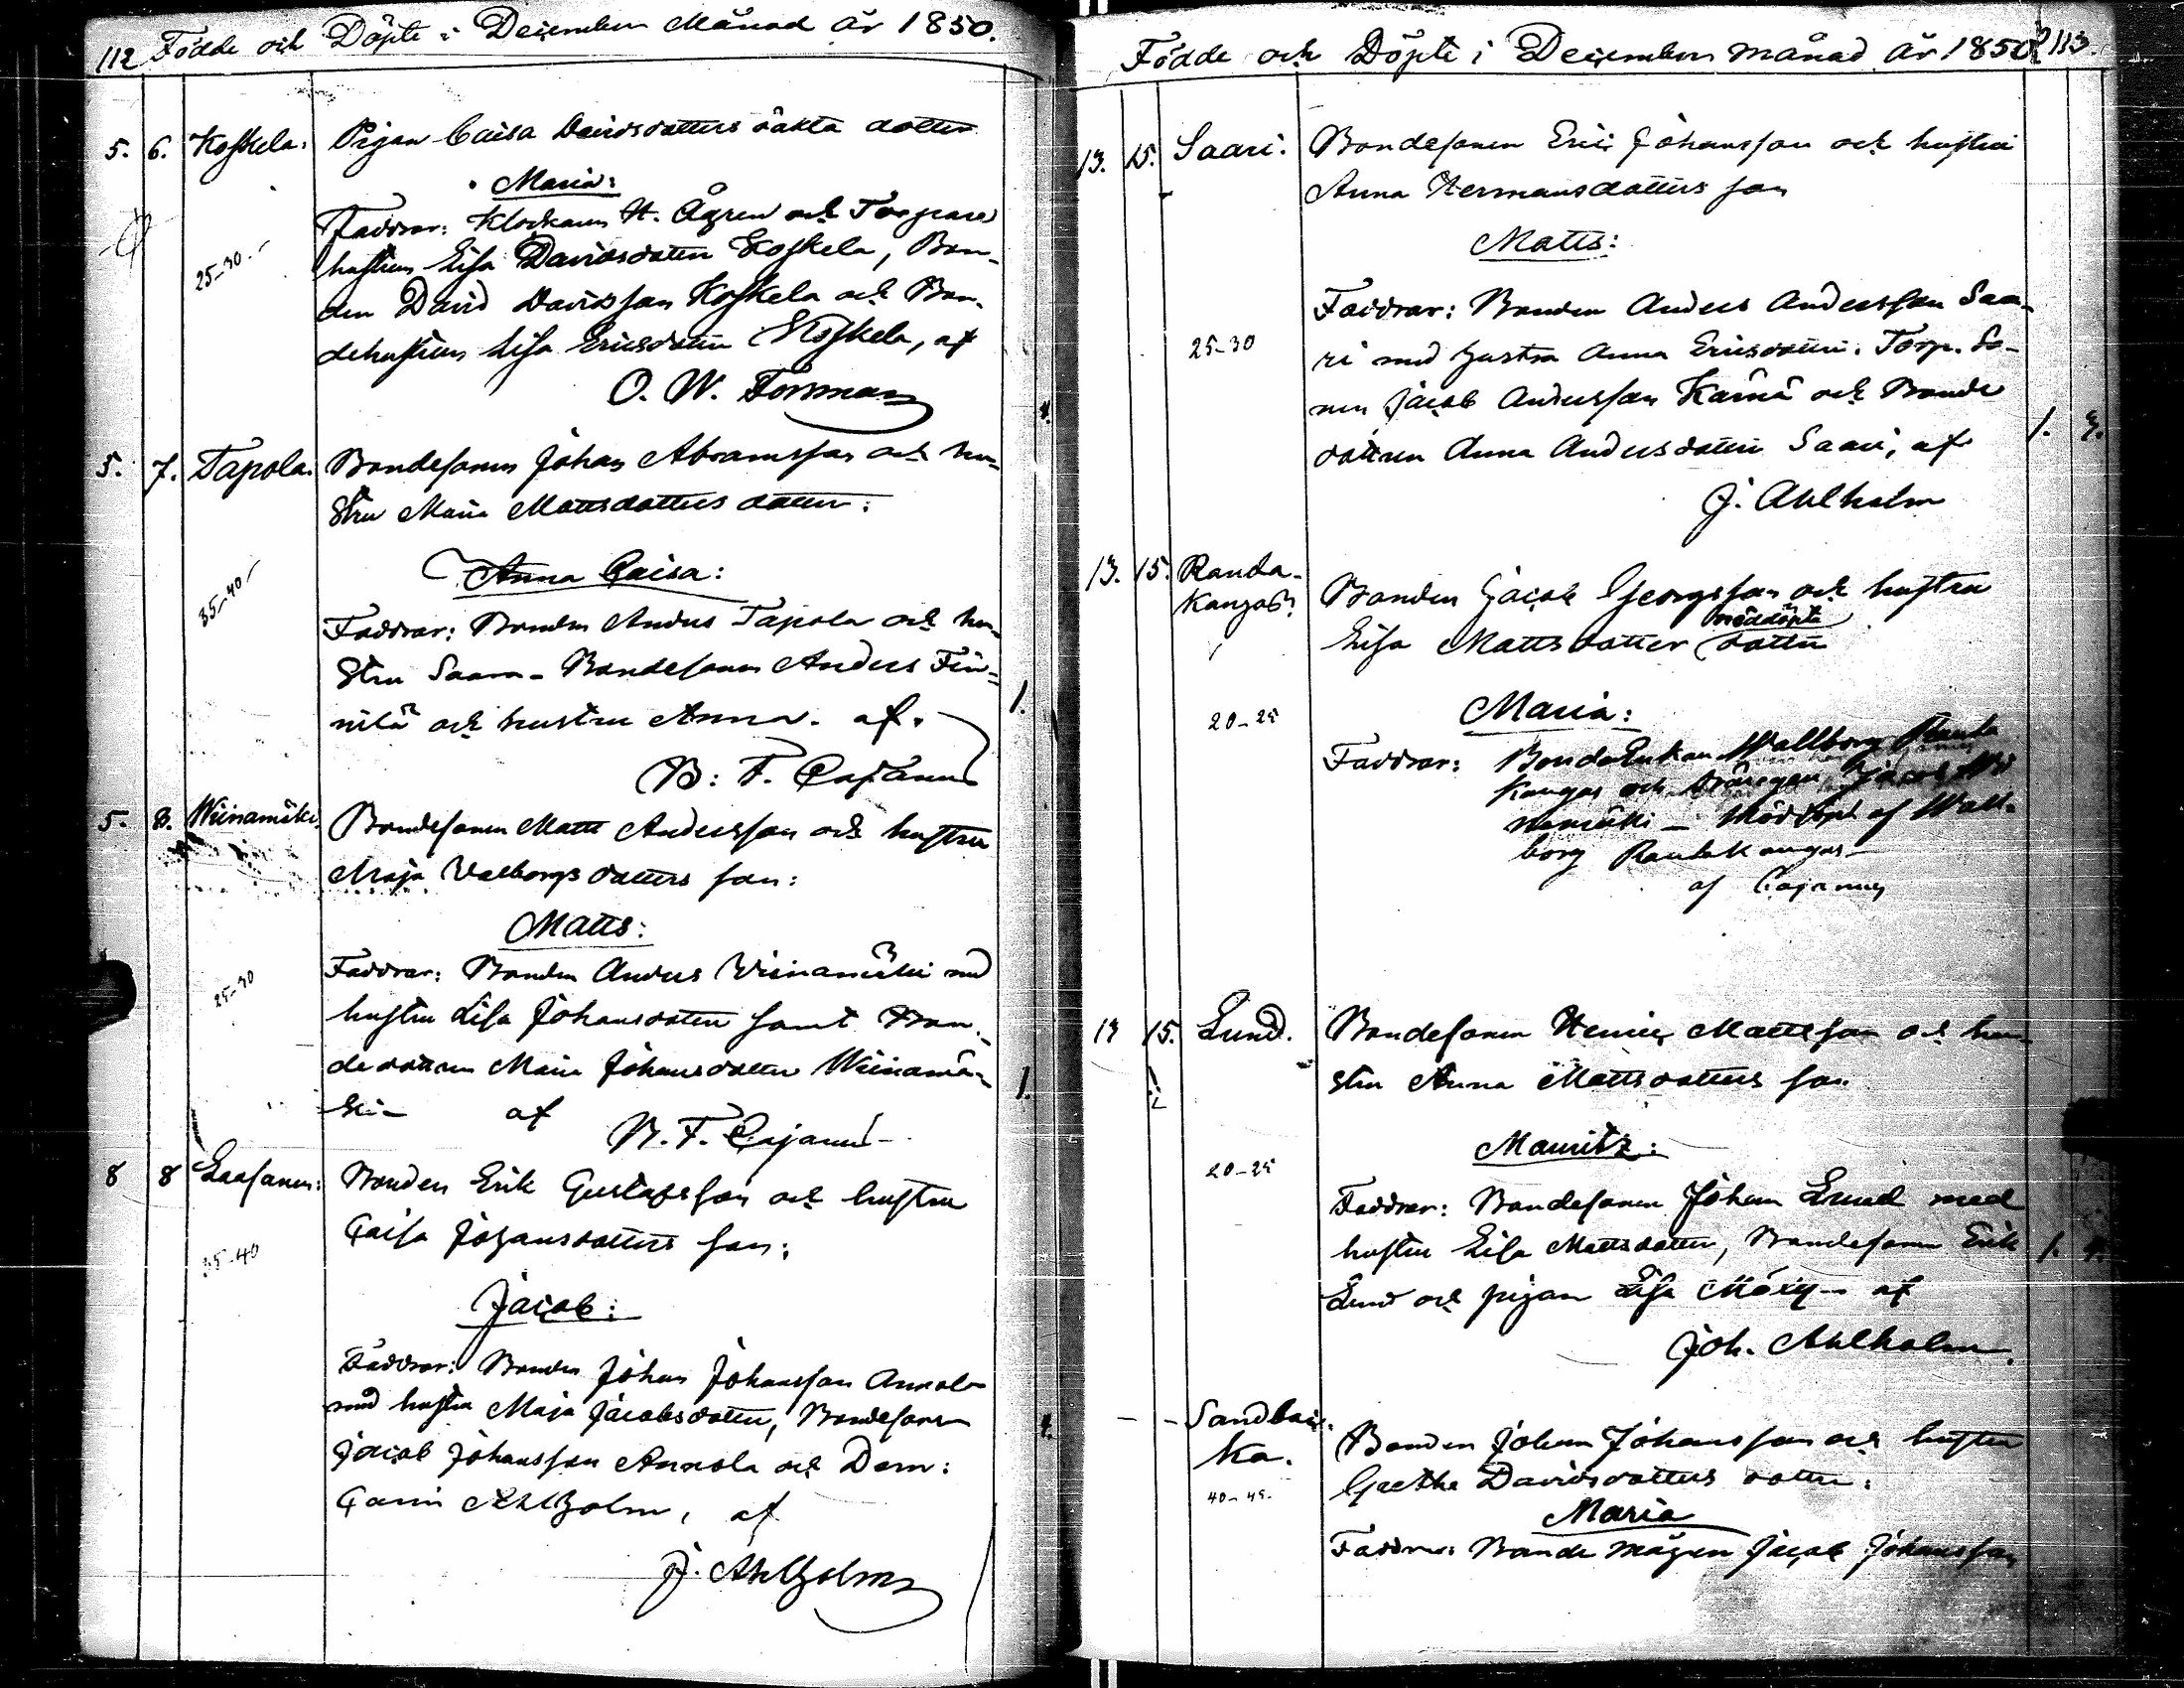 112 Födde och Döpte i December Månad År 1850.
5. 6. Koskela. Pigan Caisa Davidsdotters oäkta dotter
Maria:
Faddrar: Klockaren H. Ågren och Torpare
25-30 hustrun Lisa Davidsdotter Koskela, Bon-
den David Davidsson Koskela och Bon-
dehustrun Lisa Ericsdotter Koskela, af
O. W. Forsman
5. 7. Tapola. Bondesonen Johan Abramsson och hu-
stru Maria Mattsdotters dotter:
Anna Caisa:
35-40
Faddrar: Bonden Anders Tapola och hu-
stru Saara - Bondesonen Anders
nilä och hustru Anna. af. 1.
B: F. Cajanus
5. 8. Wiinamäki. Bondesonen Matts Andersson och hustru
Maja Valborgsdotters son:
Matts:
Faddrar: Bonden Anders Wiinamäki med
25-30
hustru Lisa Johansdotter samt Bon-
dedottren Maria Johansdotter Wiinamä- 1.
ki - af
B. F. Cajanus
8 8 Laasanen: Bonden Erik Gustafsson och hustru
Caisa Johansdotters son:
35-40
Jacob:
Faddrar: Bonden Johan Johansson Annola
med hustru Maja Jacobsdotter, Bondesonen
Jacob Johansson Annola och Dem:
Carin Ahlholm, af
J. Ahlholm
Födde och Döpte i December månad år 1850. 113.
13. 15. Saari. Bondesonen Eric Johansson och hustru
Anna Hermansdotters son
Matts:
Faddrar: Bonden Anders Andersson Saa-
25-30 ri med hustru Anna Ericsdotter. Torp. So-
nen Jacob Andersson Kärnä och Bonde
dottren Anna Andersdotter Saari, af 1.
J. Ahlholm
13. 15. Randa- Bonden Jacob Georgsson och hustru
Kangas nöddöpta
Lisa Mattsdotter dotter
20-25 Maria:
Faddrar: Wallborg Rauta
Kangas och drängen Jacob
Nöddöpt af Wall-
borg Rautakangas
af Cajanus
13 15. Lund. Bondesonen Henric Mattsson och hu-
stru Anna Mattsdotters son
Mauritz:
20-25
Faddrar: Bondesonen Johan Lund med
hustru Lisa Mattsdotter, Bondesonen Erik 1.
Lund och pigan Lisa af
Joh. Ahlholm.
- - Sandbac-
ka. Bonden Johan Johansson och hustru
40-45. Gretha Davidsdotters dotter:
Maria
Faddrar: Bonde mågen Jacob Johansson